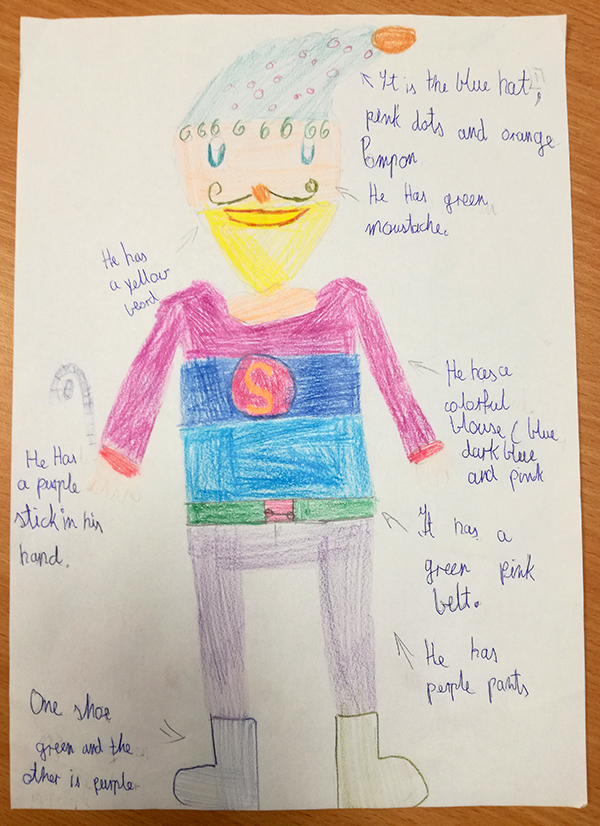 It is the blue hat,
pink dots and orange
Pompon.
He Has green
moustache.
He has
a yellow
beord
S
He has a
colorful
blouse ( blue
dark blue
and pink
He Has
a purple
stick in his
hand.
It has a
green pink
belt.
He has
perple pants
One shoe
green and the
other is purple.